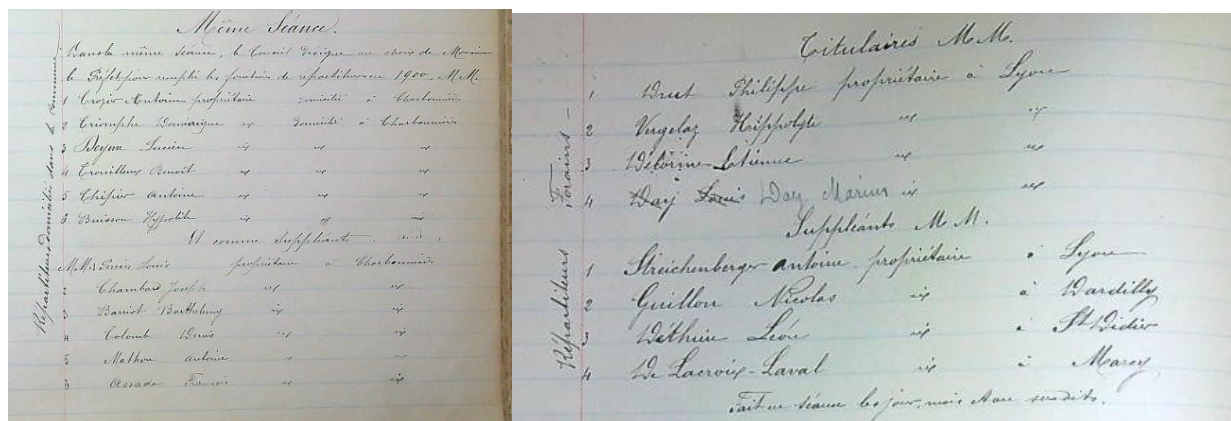 Même Séance.
Dans la même séance, le Conseil désigne au choix de Monsieur
le Préfet pour remplir les fonctions de répartiteurs en 1900, M.M.
1 Crozier Antoine propriétaire domicilié à Charbonnières
2 Triomphe Dominique id domicilié à Charbonnières
3 Peyna Lucien id id id
4 Trouilleux Benoît id id id
5 Chipier Antoine id id id
6 Buisson Hyppolite id id id
Et comme Suppléants
M.M. 1 Louis propriétaire à Charbonnières
2 Chambard Joseph id id
3 Barriot Barthélemy id id
4 Colomb Denis id id
5 Mathon Antoine id id
6 Assada François id id
Répartiteurs domiciliés dans la commune
Titulaires M.M.
1 Drut Philippe propriétaire à Lyon
2 Vergelaz Hippolyte id id
3 Etienne id id
4 Day Louis Day Marius id id
Suppléants M.M.
1 Streichenberger antoine propriétaire à Lyon
2 Guillon Nicolas id à Dardilly
3 Déthieu Léon id à St Didier
4 De Lacroix-Laval id à Marcy
Fait en séance les jour, mois et an susdits.
Répartiteurs Forains